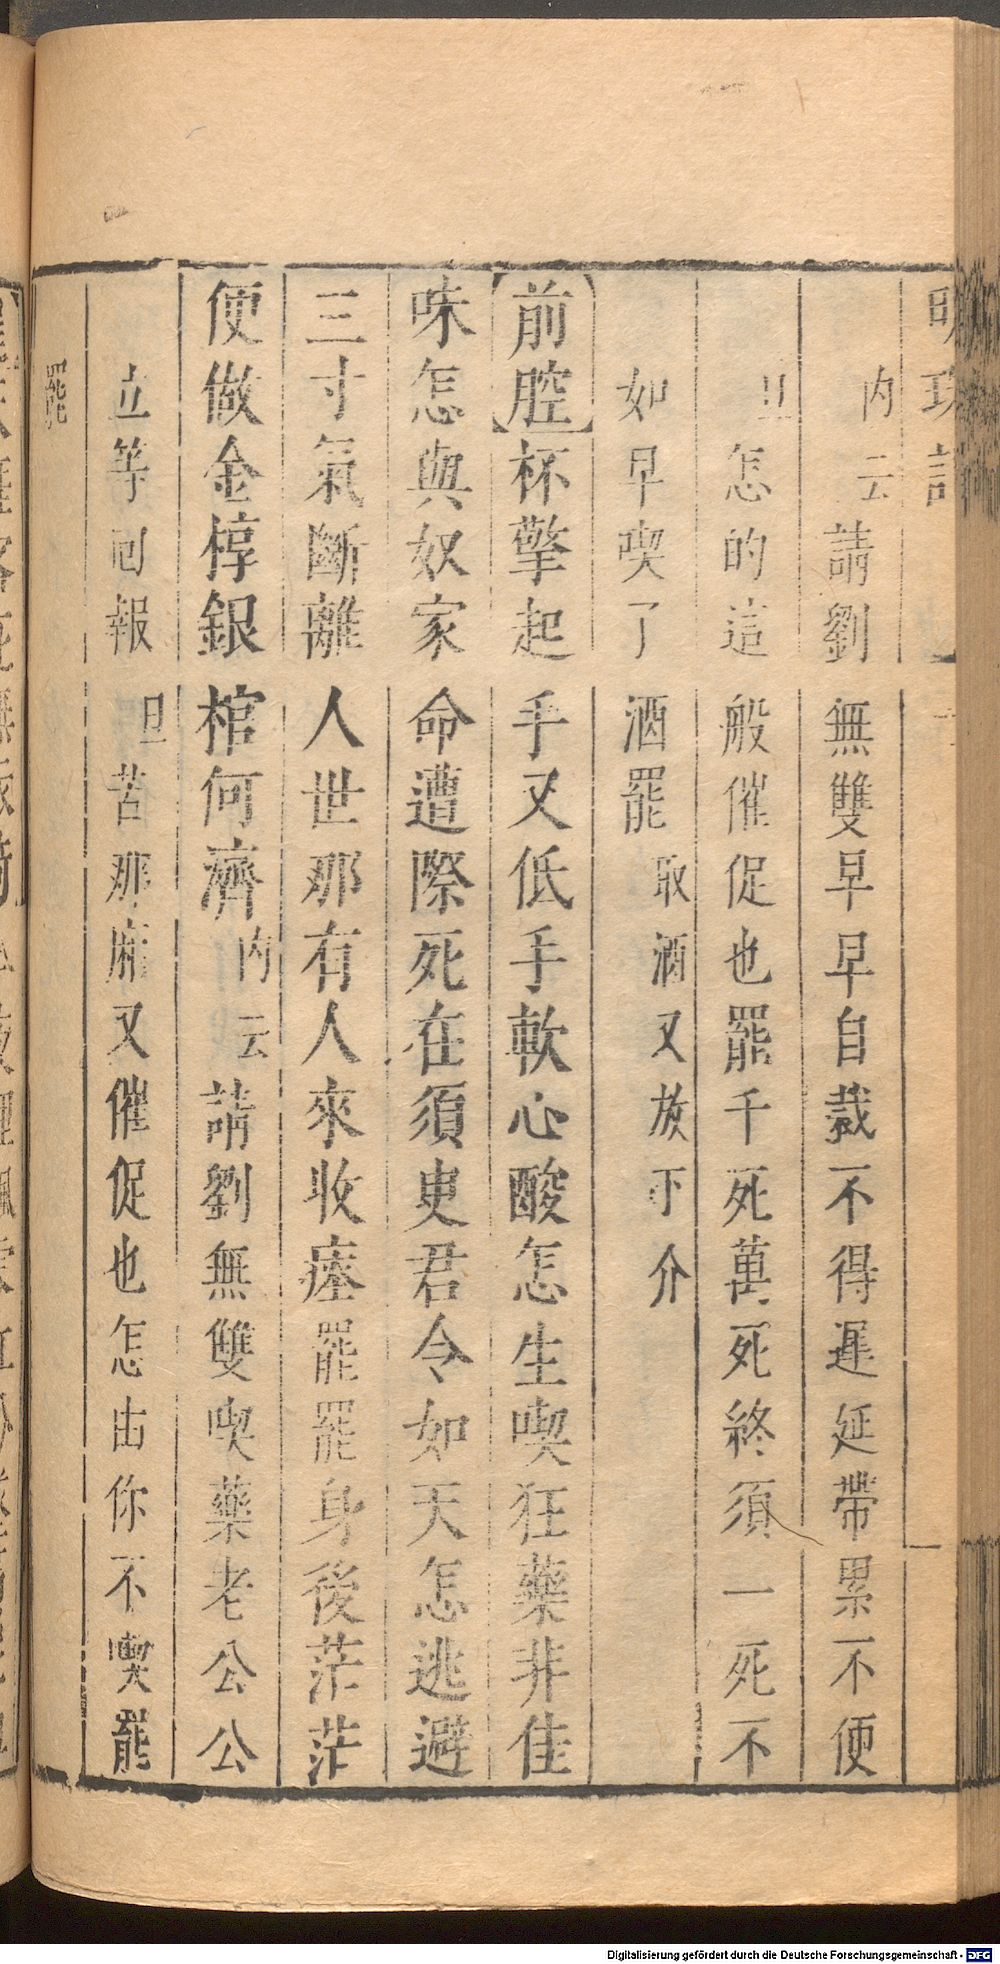 明珠記
內云請劉無雙早早自裁不得遲延帶累不便
旦怎的這般催促也罷千死萬死終須一死不
如早喫了酒罷取酒又放下介
【前腔】杯擎起手又低手軟心酸怎生喫狂藥非佳
味怎與奴家命遭際死在須臾君令如天怎逃避
三寸氣斷離人世那有人來收瘗罷罷身後茫茫
便做金椁銀棺何濟內云請劉無雙喫藥老公公
立等囘報旦苦那厮又催促也怎由你不喫罷
罷
Digitalisierung gefördert durch die Deutsche Forschungsgemeinschaft - DFG